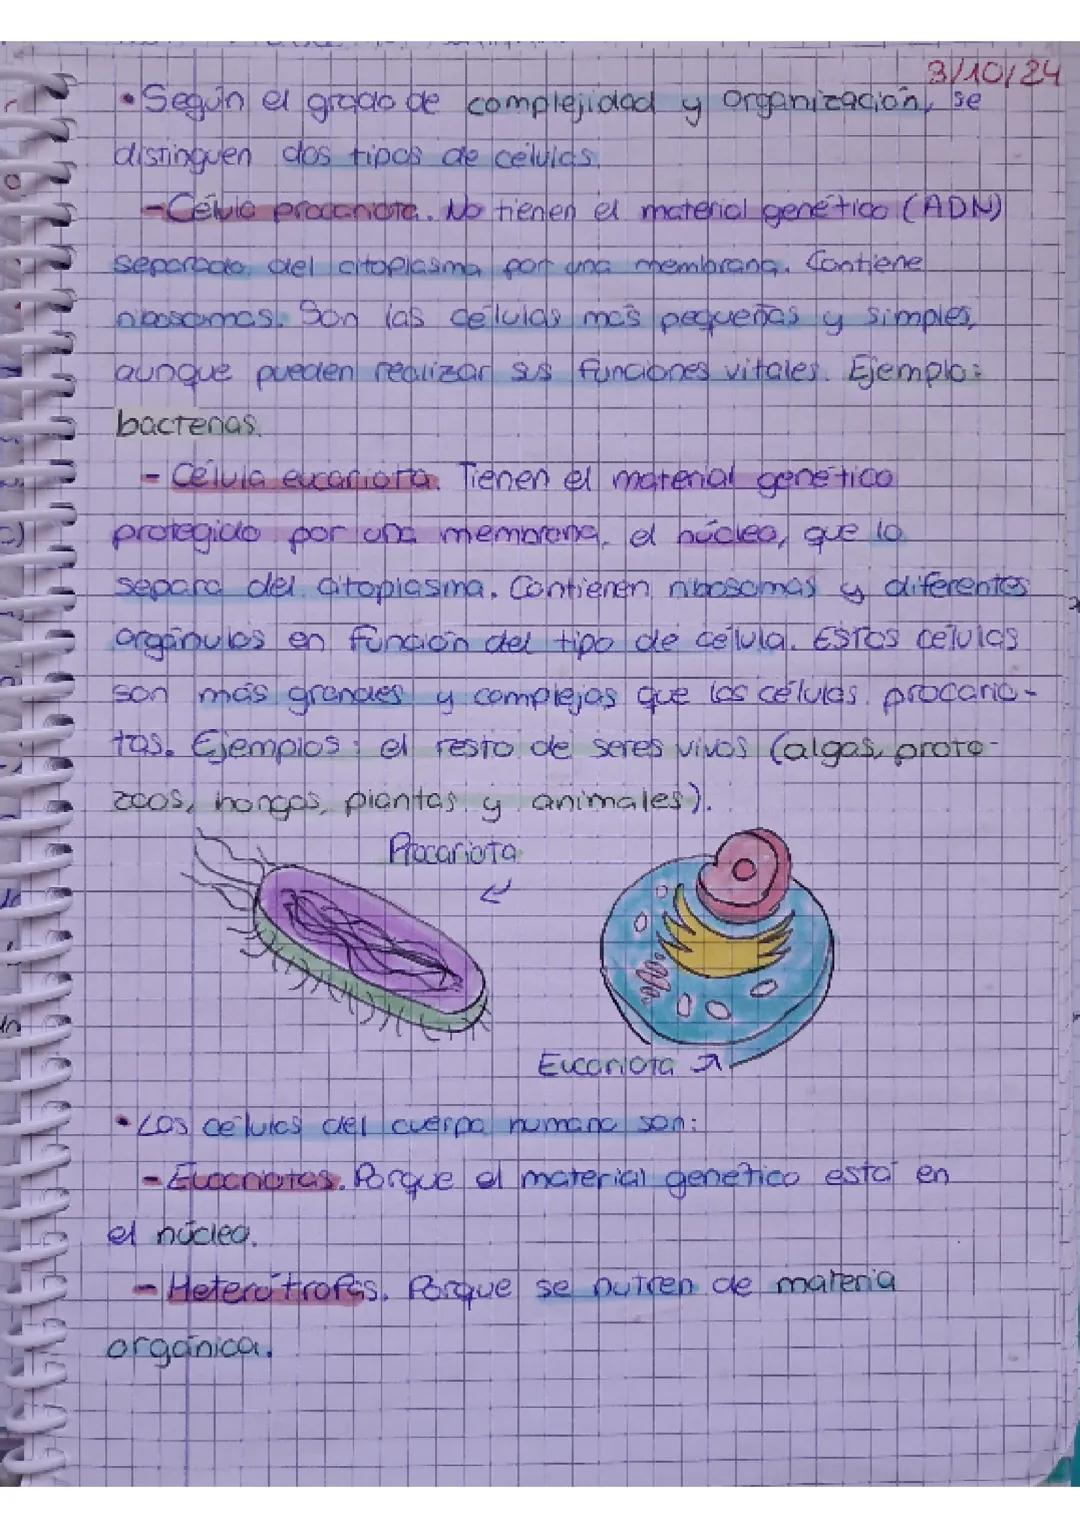 3/10/24
• Según el grado de complejidad y organización, se
distinguen dos tipos de células.
- Célula procariota. No tienen el material genético (ADN)
separado del citoplasma por una membrana. Contiene
ribosomas. Son las células más pequeñas y simples,
aunque pueden realizar sus funciones vitales. Ejemplo:
bacterias.
- Célula eucariota. Tienen el material genético
protegido por una membrana, el núcleo, que lo
separa del citoplasma. Contienen ribosomas y diferentes
orgánulos en función del tipo de célula. Estas células
son más grandes y complejas que las células procario-
tas. Ejemplos: el resto de seres vivos (algas, proto-
zoos, hongos, plantas y animales).
Procariota
Eucariota
• Las células del cuerpo humano son:
- Eucariotas. Porque el material genético está en
el núcleo.
- Heterótrofas. Porque se nutren de materia
orgánica.